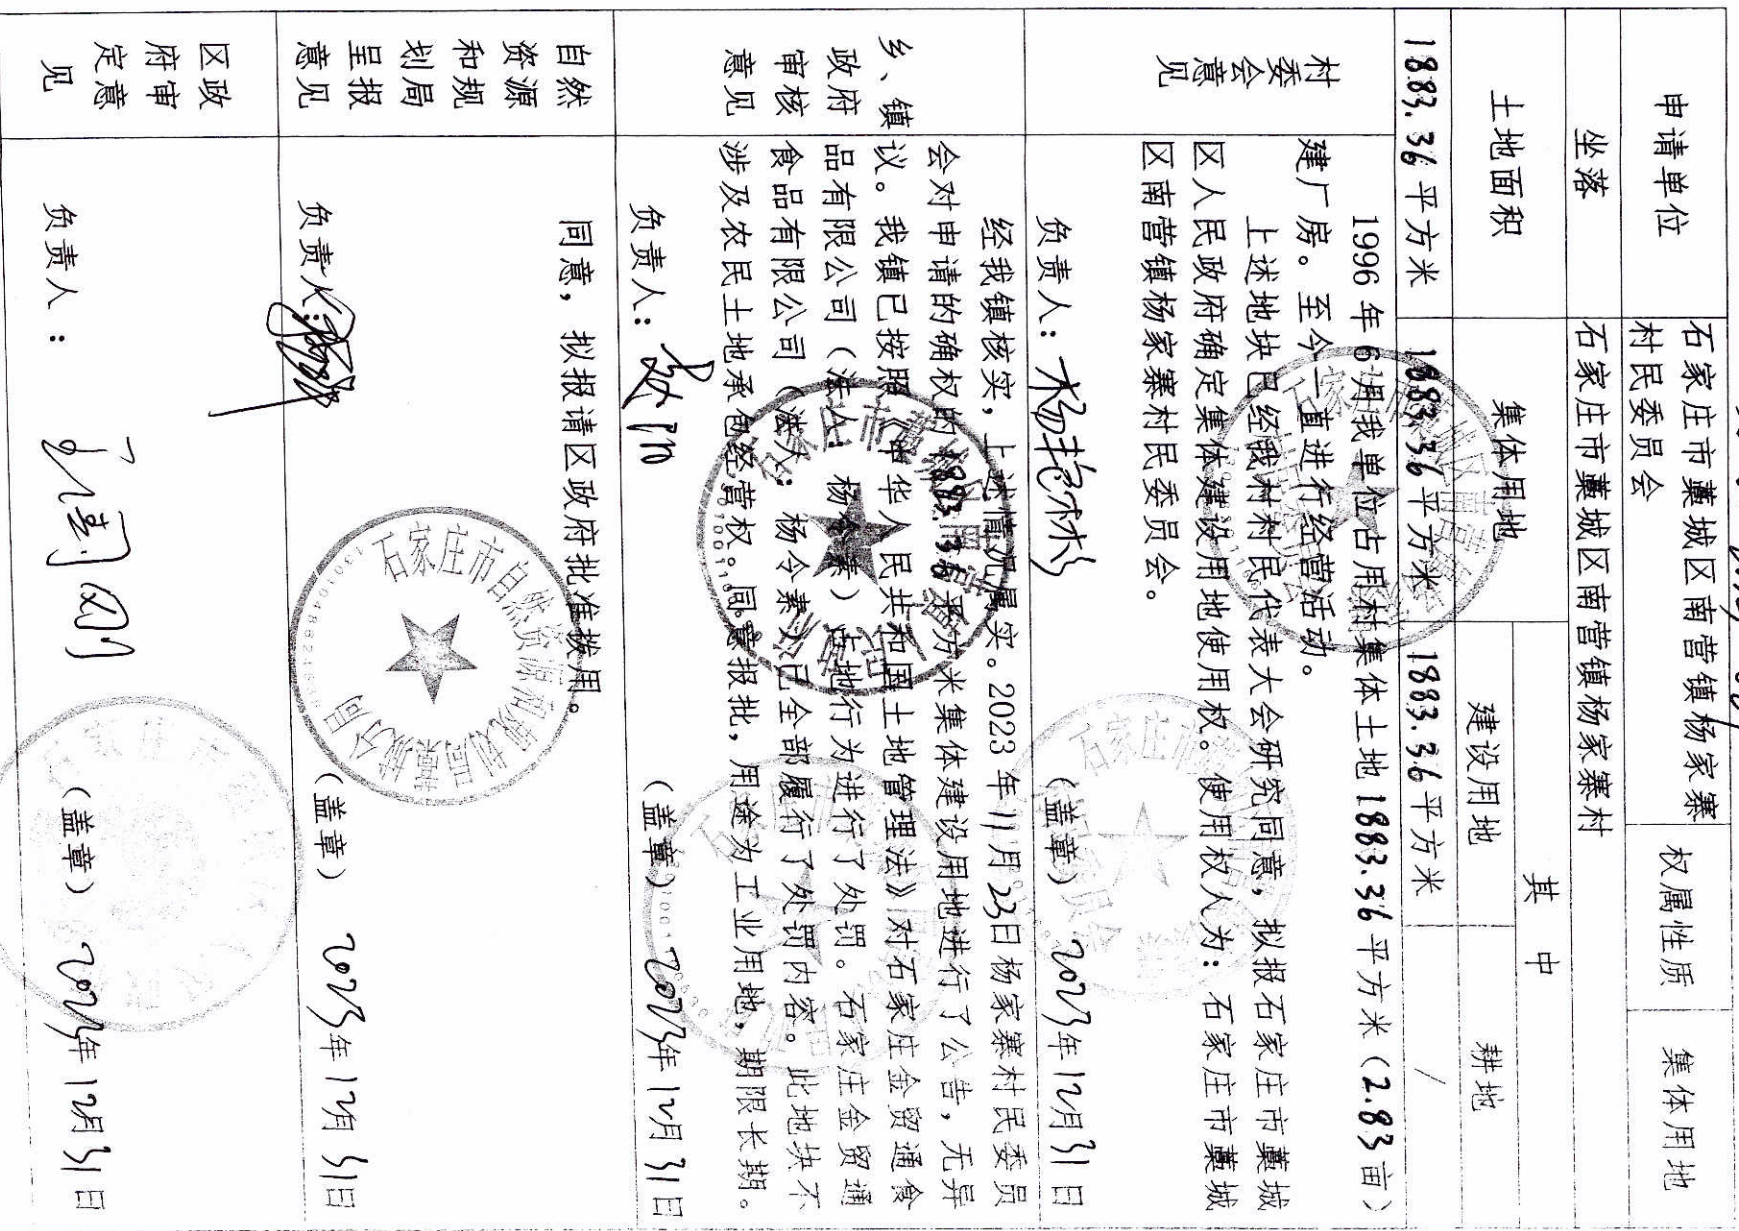 申请单位
石家庄市藁城区南营镇杨家寨
村民委员会
权属性质
集体用地
坐落
石家庄市藁城区南营镇杨家寨村
土地面积
集体用地
其中
建设用地
耕地
1883.36平方米
1883.36平方米
1883.36平方米
/
村委会意见
1996年6月我单位占用村集体土地1883.36平方米（2.83亩）
建厂房。至今一直进行经营活动。
上述地块已经我村村民代表大会研究同意，拟报石家庄市藁城
区人民政府确定集体建设用地使用权。使用权人为：石家庄市藁城
区南营镇杨家寨村民委员会。
负责人：
（盖章）2023年12月31日
乡、镇
政府
审核
意见
经我镇核实，上述情况属实。2023年11月23日杨家寨村民委员
会对申请的确权的1883.36平方米集体建设用地进行了公告，无异
议。我镇已按照《中华人民共和国土地管理法》对石家庄金贸通食
品有限公司（法人：杨令素）占地行为进行了处罚。石家庄金贸通
食品有限公司（法人：杨令素）已全部履行了处罚内容。此地块不
涉及农民土地承包经营权。同意报批，用途为工业用地，期限长期。
负责人：
（盖章）2023年12月31日
自然
资源
和规
划局
呈报
意见
同意，拟报请区政府批准拨用。
负责人：
石家庄市自然资源和规划局藁城分局
（盖章）2023年12月31日
区政
府审
定意
见
负责人：
（盖章）2023年12月31日